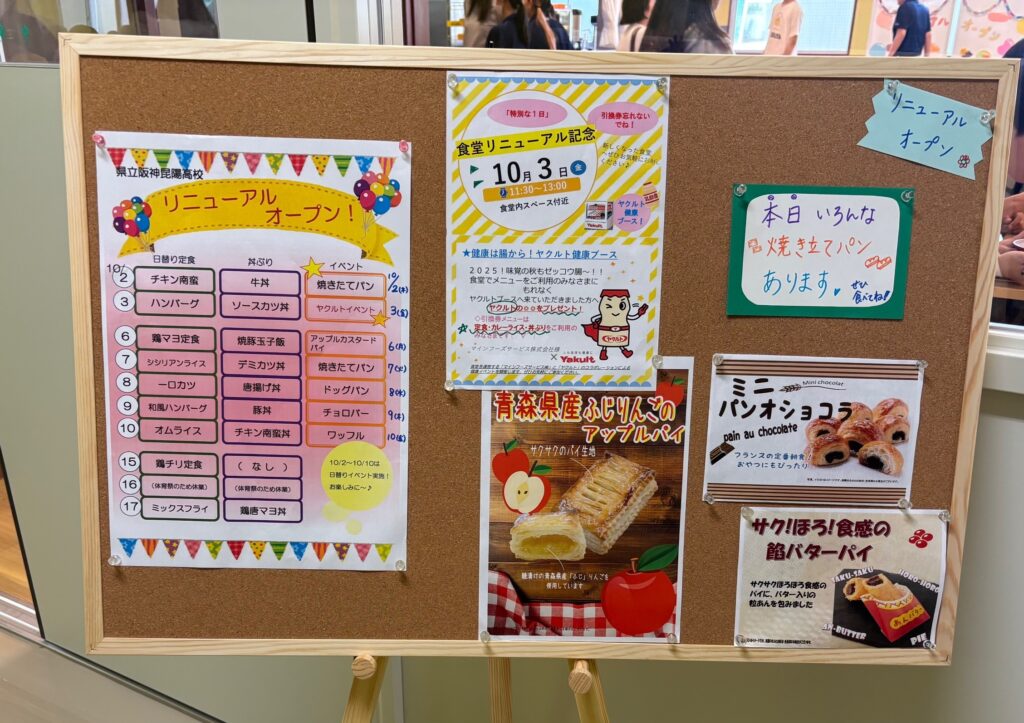 県立阪神昆陽高校
リニューアル
オープン！
日替り定食 丼ぶり イベント
10/2 チキン南蛮 牛丼 焼きたてパン 10/2(木)
3 ハンバーグ ソースカツ丼 ヤクルトイベント 3(金)
6 鶏マヨ定食 焼豚玉子飯 アップルカスタードパイ 6(月)
7 シシリアンライス デミカツ丼 焼きたてパン 7(火)
8 一口カツ 唐揚げ丼 ドッグパン 8(水)
9 和風ハンバーグ 豚丼 チョロバー 9(木)
10 オムライス チキン南蛮丼 ワッフル 10(金)
15 鶏チリ定食 （なし）
16 (体育祭のため休業) (体育祭のため休業)
17 ミックスフライ 鶏唐マヨ丼
10/2～10/10は
日替りイベント実施！
お楽しみに～♪
「特別な１日」
引換券忘れない
でね！
食堂リニューアル記念
新しくなった食堂
へぜひお気軽にお越し
ください♪
10月3日 金
11:30～13:00
食堂内スペース付近
ヤクルト
健康
ブース！
Yakult
★健康は腸から！ヤクルト健康ブース
２０２５！味覚の秋もゼッコウ腸～！！
食堂でメニューをご利用のみなさまに
もれなく
ヤクルトブースへ来ていただきました方へ
ヤクルトの○○をプレゼント！
◇引換券メニューは
定食・カレーライス・丼ぶりをご利用の
マインフーズサービス株式会社様
× Yakult
ヤクルト
青森県産ふじりんごの
アップルパイ
サクサクのパイ生地
蜜漬けの青森県産「ふじ」りんごを
使用しています
リニューアル
オープン
本日 いろんな
焼き立てパン
あります♪
ぜひ
食べてね!!
ミニ
パンオショコラ
Mini chocolat
pain au chocolate
フランスの定番朝食！
おやつにもぴったり
サク!ほろ!食感の
餡バターパイ
サクサクほろほろ食感の
パイに、バター入りの
粒あんを包みました
SAKU-SAKU
HORO-HORO
AN-BUTTER
PIE